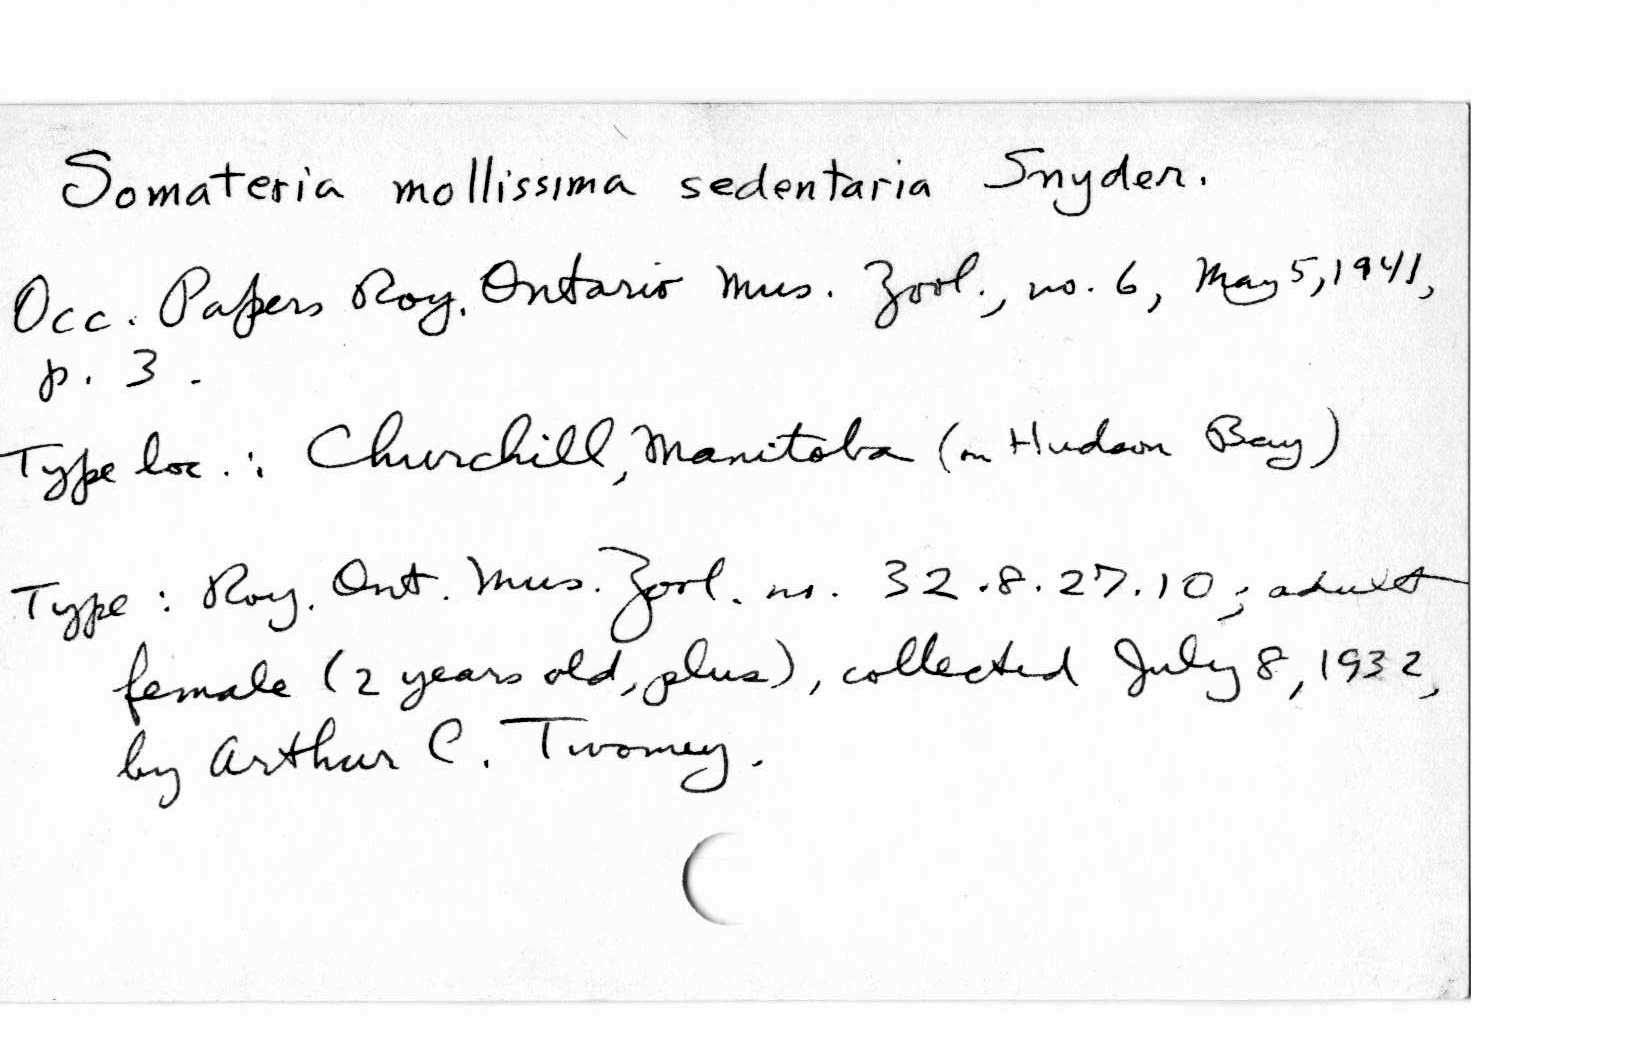 Somateria mollissima sedentaria Snyder.
Occ. Papers Roy. Ontario Mus. Zool., no. 6, May 5, 1941,
p. 3.
Type loc.: Churchill, Manitoba (on Hudson Bay)
Type: Roy. Ont. Mus. Zool. no. 32.8.27.10; adult
female (2 years old, plus), collected July 8, 1932,
by Arthur C. Twomey.